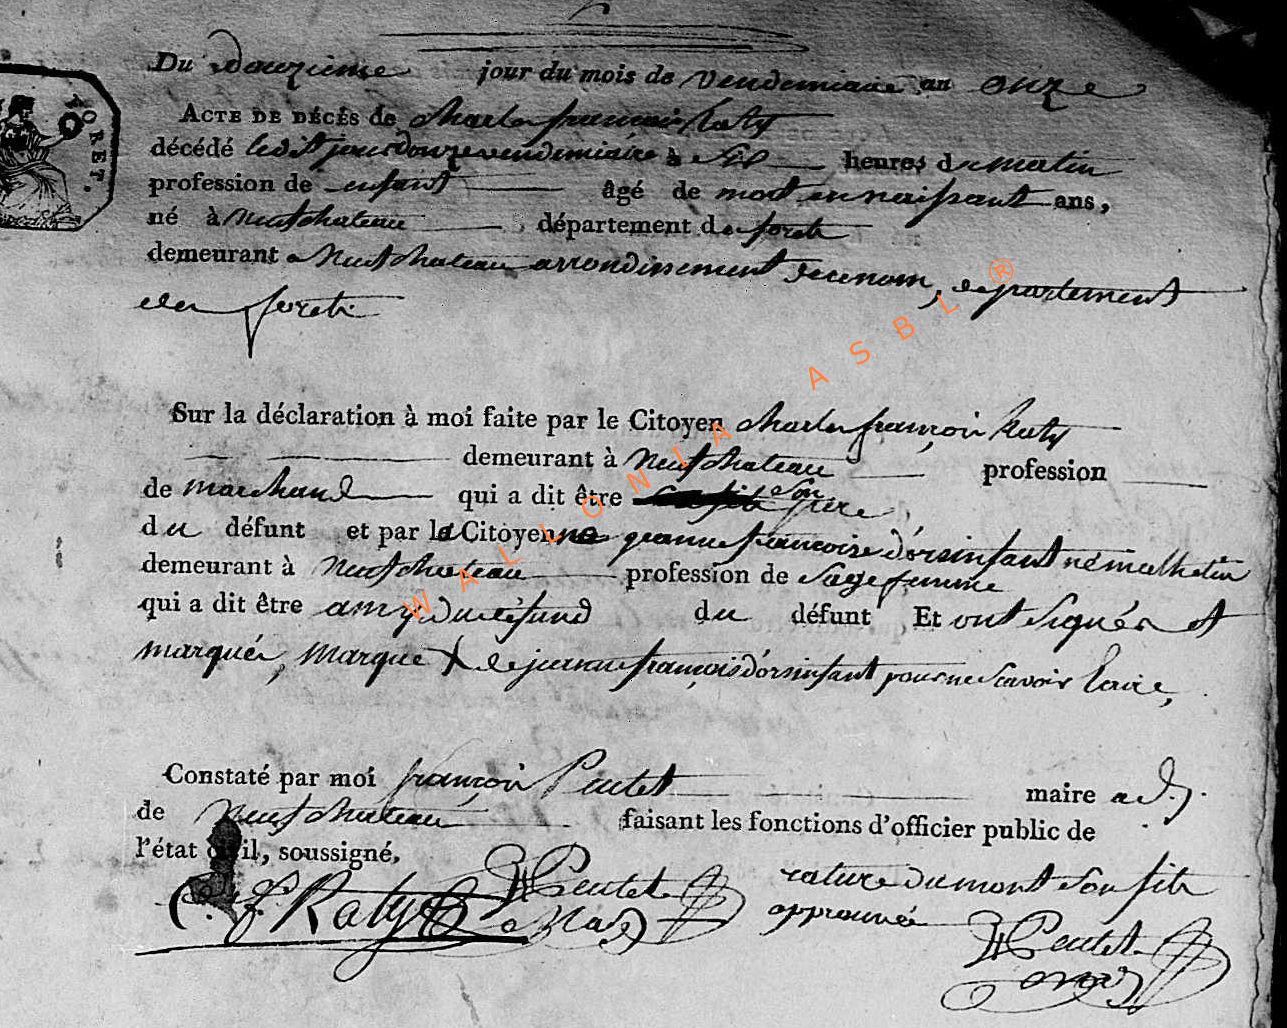 Du douzieme jour du mois de vendemiaire an onze
ACTE DE DÉCÈS de charles françois Raty
décédé ledit jour douze vendemiaire à six heures du matin
profession de enfant âgé de mort en naissant ans,
né à neufchateau, département des forets
demeurant a Neufchateau arrondissement de ce nom, departement
des forets
FORET.
Sur la déclaration à moi faite par le Citoyen charles françois Raty
demeurant à neufchateau profession
de marchand qui a dit être son père
du défunt et par la Citoyenne jeanne françoise d'orsinfant née malhetin
demeurant à neufchateau profession de sage femme
qui a dit être amy du défund du défunt Et ont signés et
marqués, marque X de jeanne françois d'orsinfant pour ne scavoir Ecrire,
Constaté par moi françois Peutet maire adj.
de neufchateau faisant les fonctions d'officier public de
l'état civil, soussigné.
C. f. Raty
Peutet
rature du mont son fils
approuvée
Peutet
WALLONIA ASBL ®